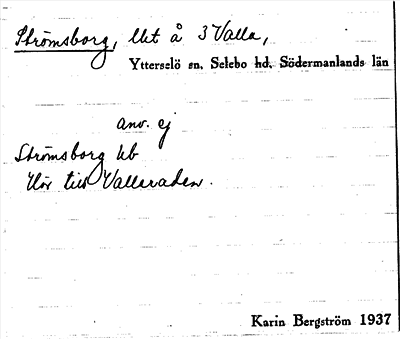 Strömsborg, lht å 3 Valla,
Ytterselö sn. Selebo hd. Södermanlands län
anv. ej
Strömsborg kb
Hör till Vallaraden.
Karin Bergström 1937